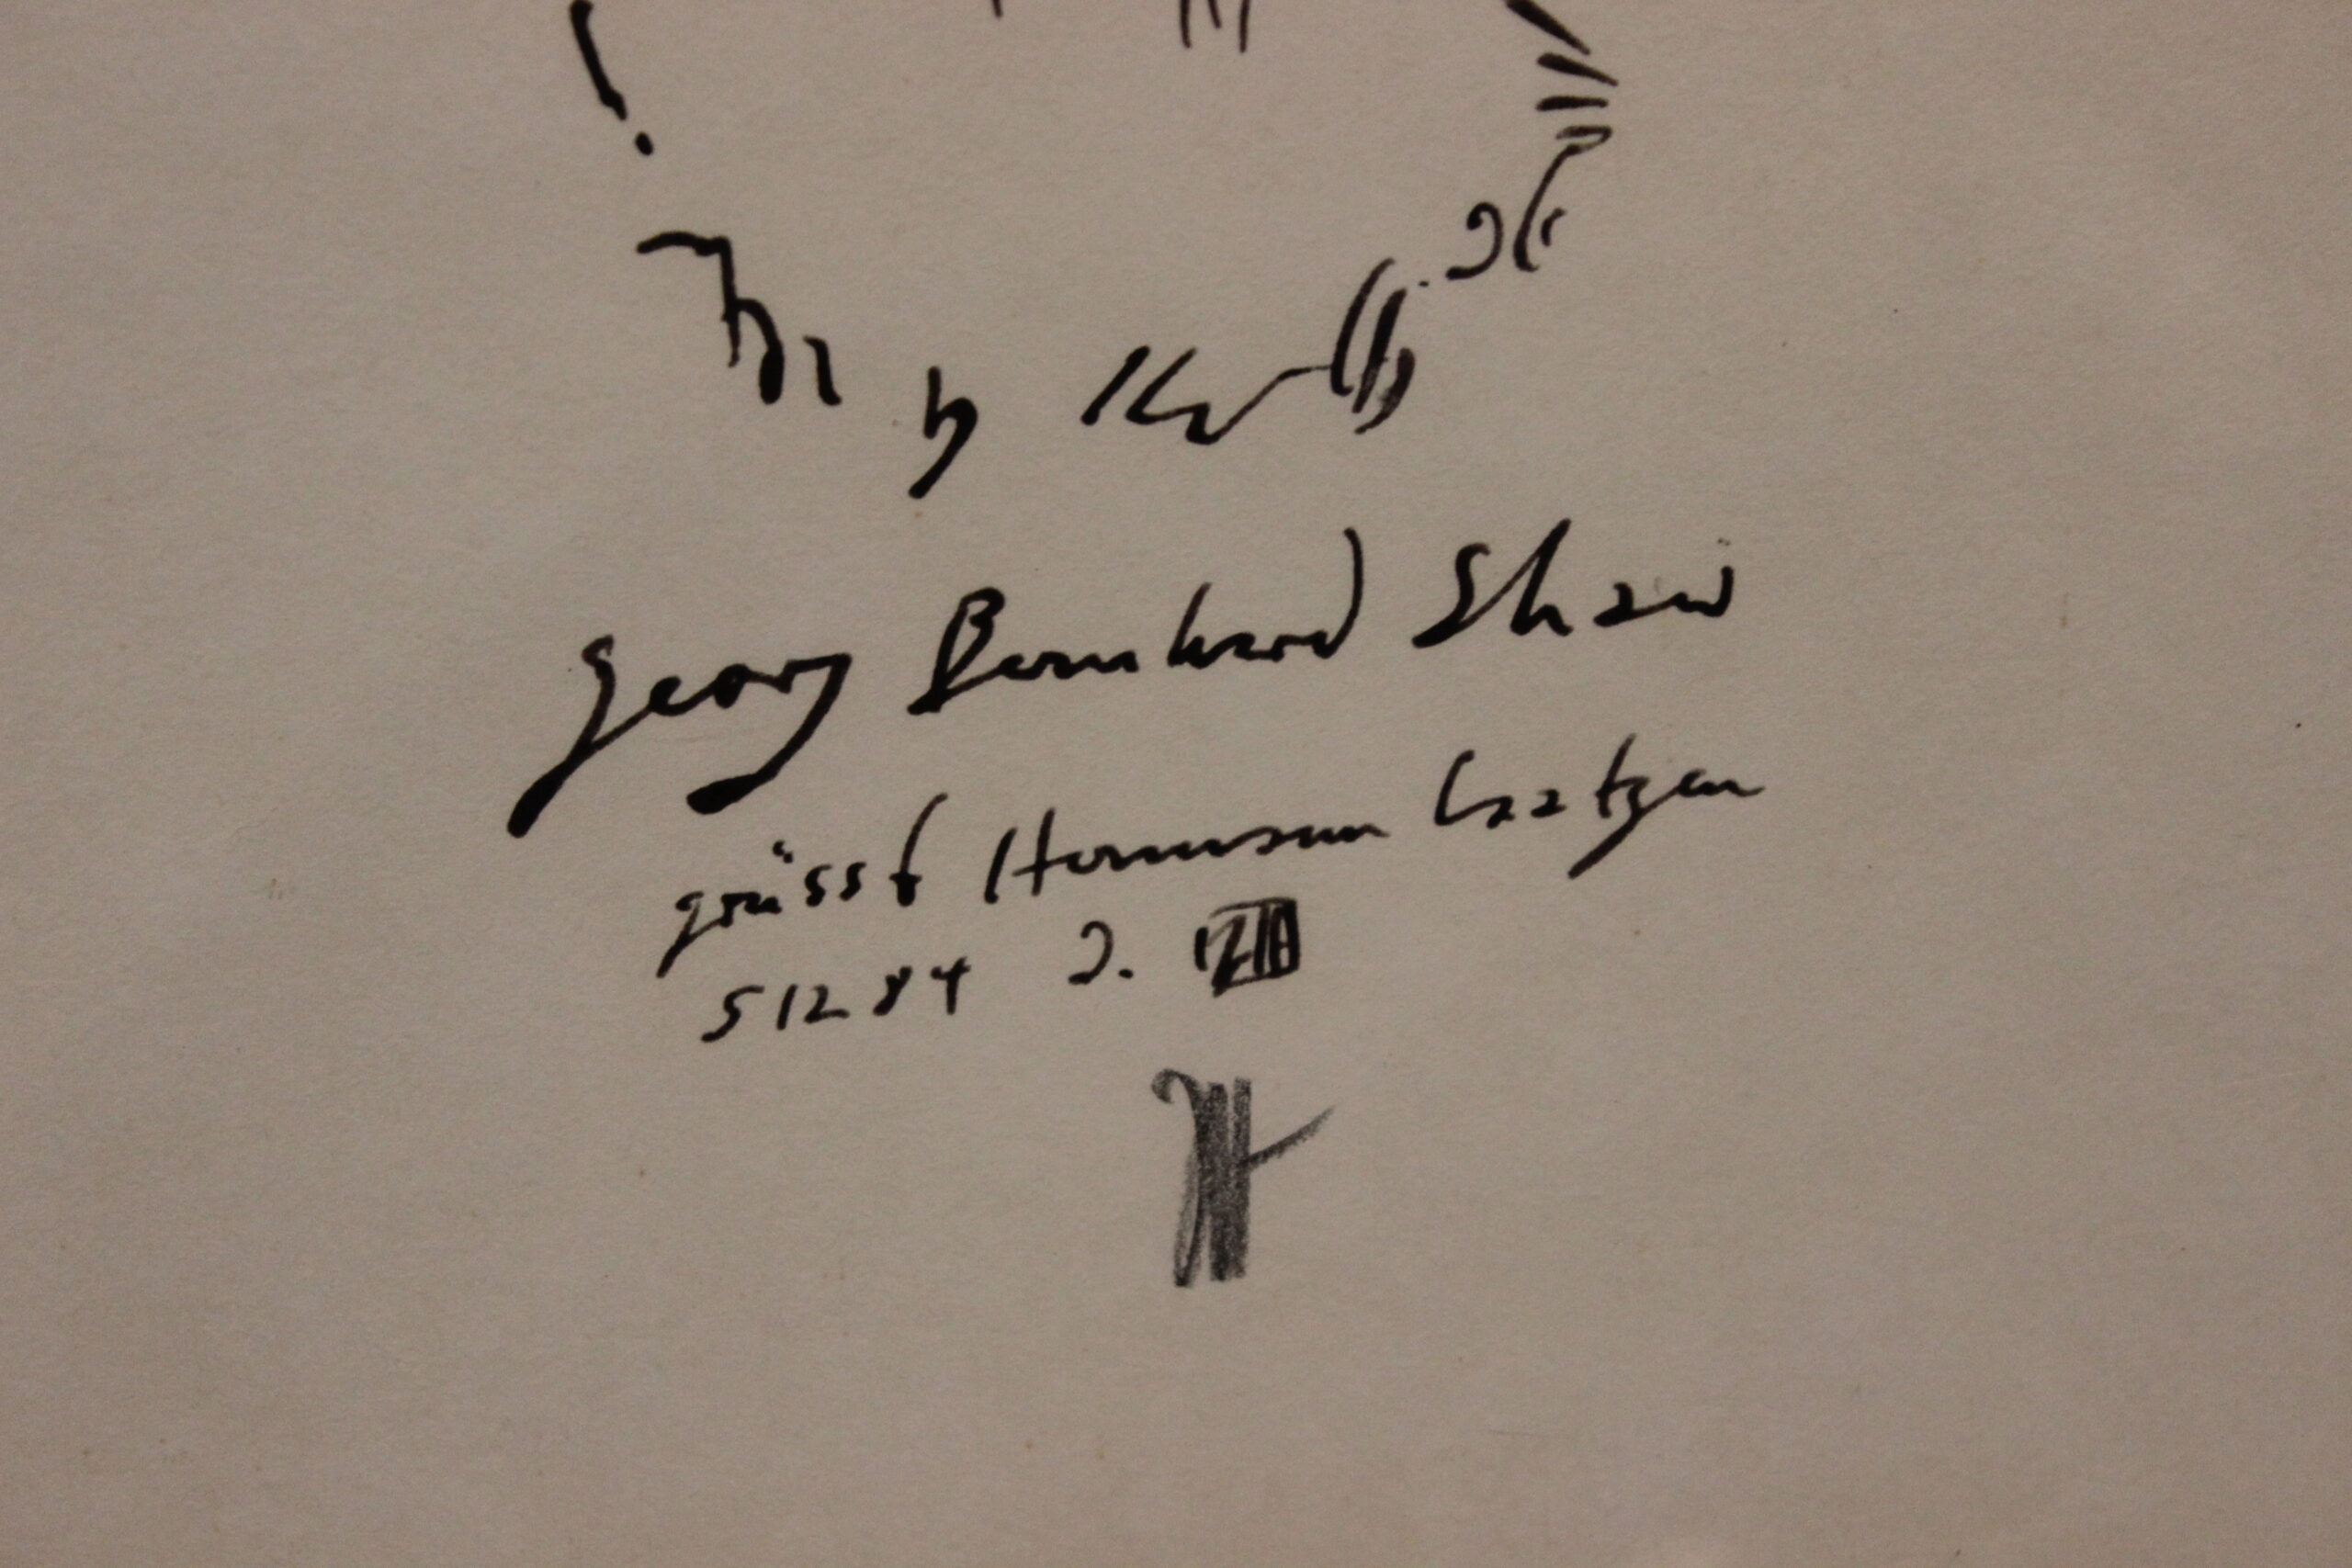 Georg Bernhard Shaw
grüsst Hermann Laatzen
5 12 84 J.